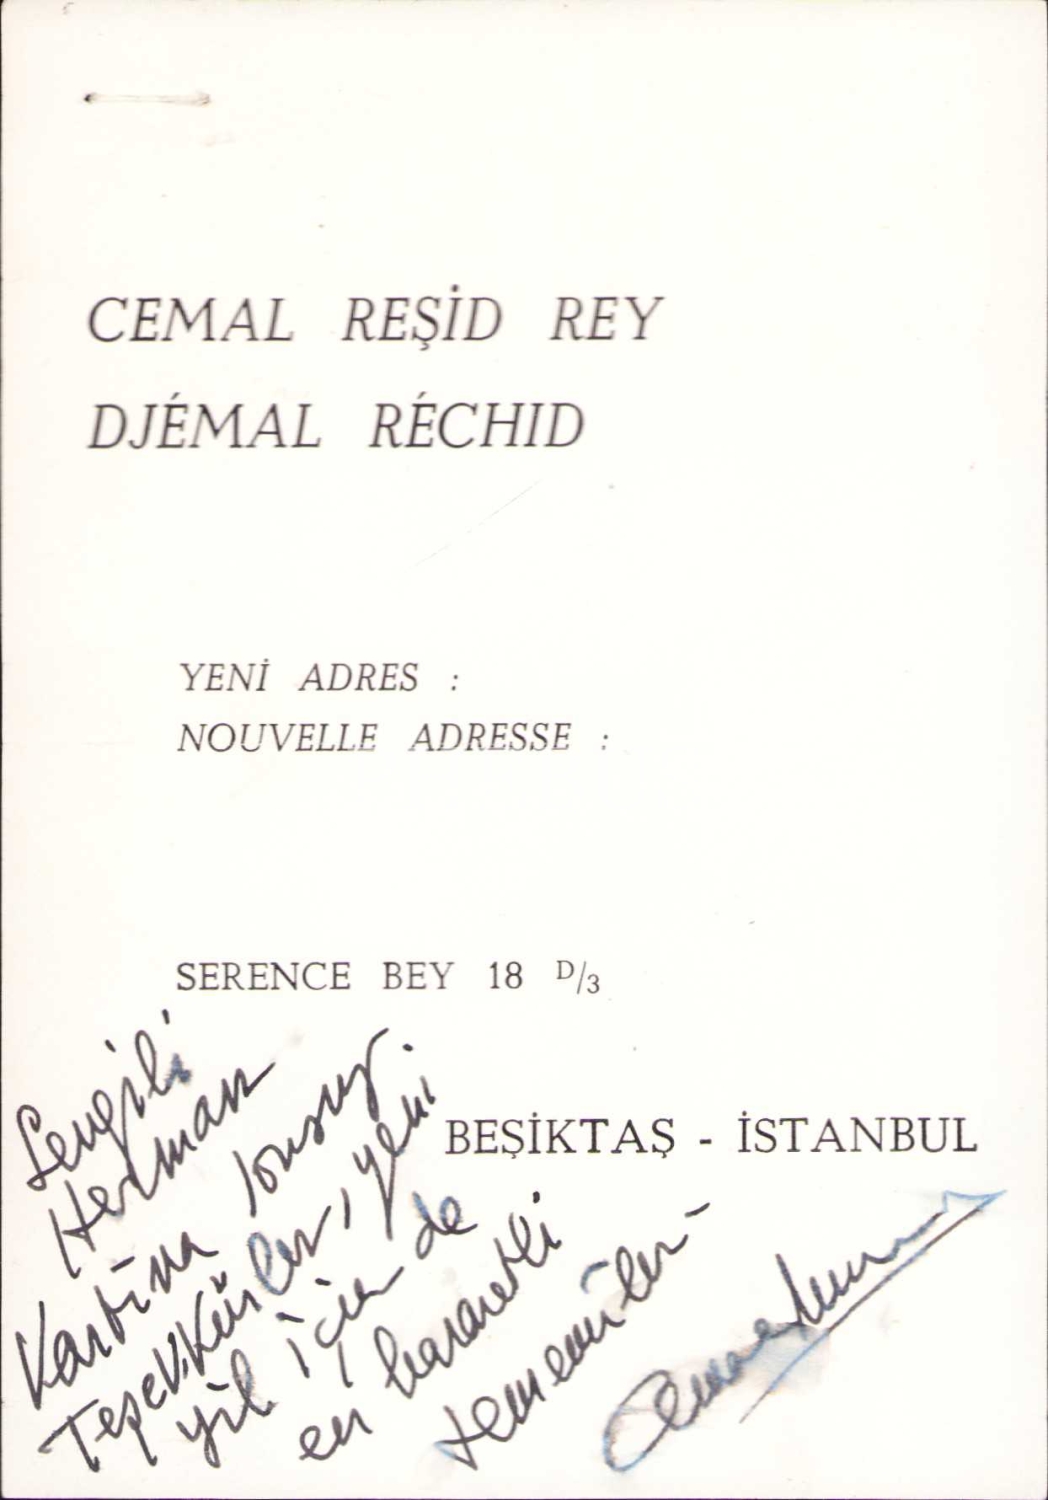 CEMAL REŞİD REY
DJÉMAL RÉCHID
YENİ ADRES :
NOUVELLE ADRESSE :
SERENCE BEY 18 D/3
BEŞİKTAŞ - İSTANBUL
Sevgili
Herman
Kartına sonsuz
Teşekkürler, yeni
yıl için de
en hararetli
temenniler